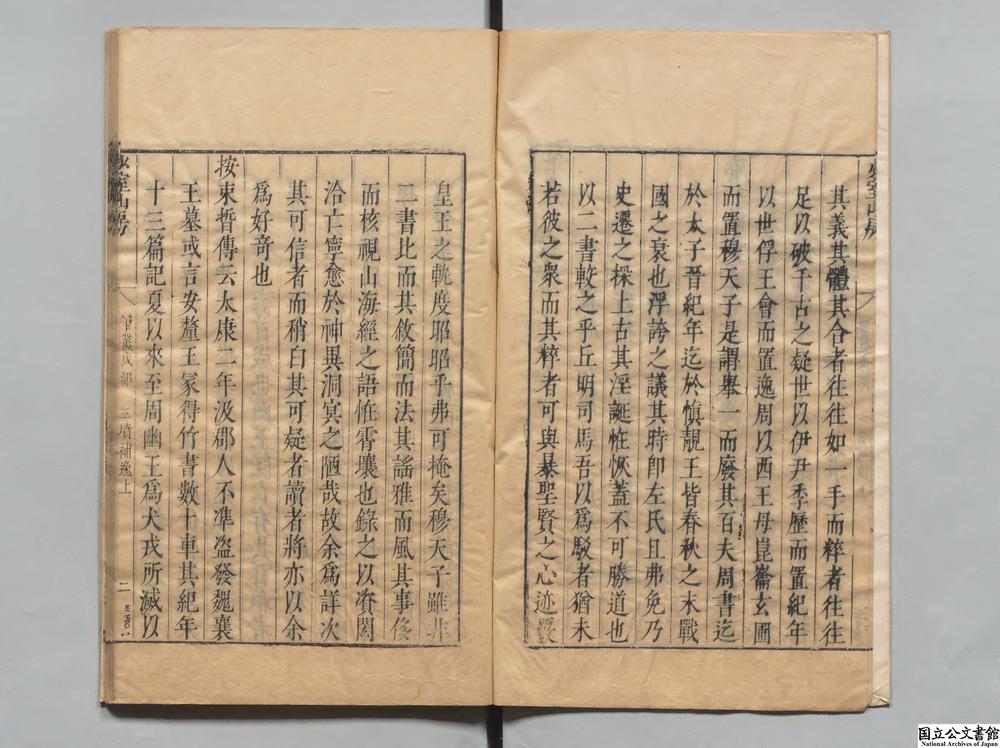 其義其體其合者往往如一手而粹者往往
足以破千古之疑世以伊尹季歷而置紀年
以世俘王會而置逸周以西王母崑崙玄圃
而置穆天子是謂舉一而廢其百夫周書迄
於太子晉紀年迄於愼靚王皆春秋之末戰
國之衰也浮誇之議其時卽左氏且弗免乃
史遷之探上古其淫誕恠恢蓋不可勝道也
以二書較之乎丘明司馬吾以爲駁者猶未
若彼之衆而其粹者可與暴聖賢之心迹覈
皇王之軌度昭昭乎弗可掩矣穆天子雖非
二書比而其敘簡而法其謠雅而風其事侈
而核視山海經之語恠霄壤也錄之以資閎
洽亡寧愈於神異洞冥之陋哉故余爲詳次
其可信者而稍白其可疑者讀者將亦以余
爲好竒也
按束晳傳云太康二年汲郡人不準盗發魏襄
王墓或言安釐王冢得竹書數十車其紀年
十三篇記夏以來至周幽王爲犬戎所滅以
少室山房
筆叢戊部
三墳補逸上
二
少室山房
国立公文書館
National Archives of Japan